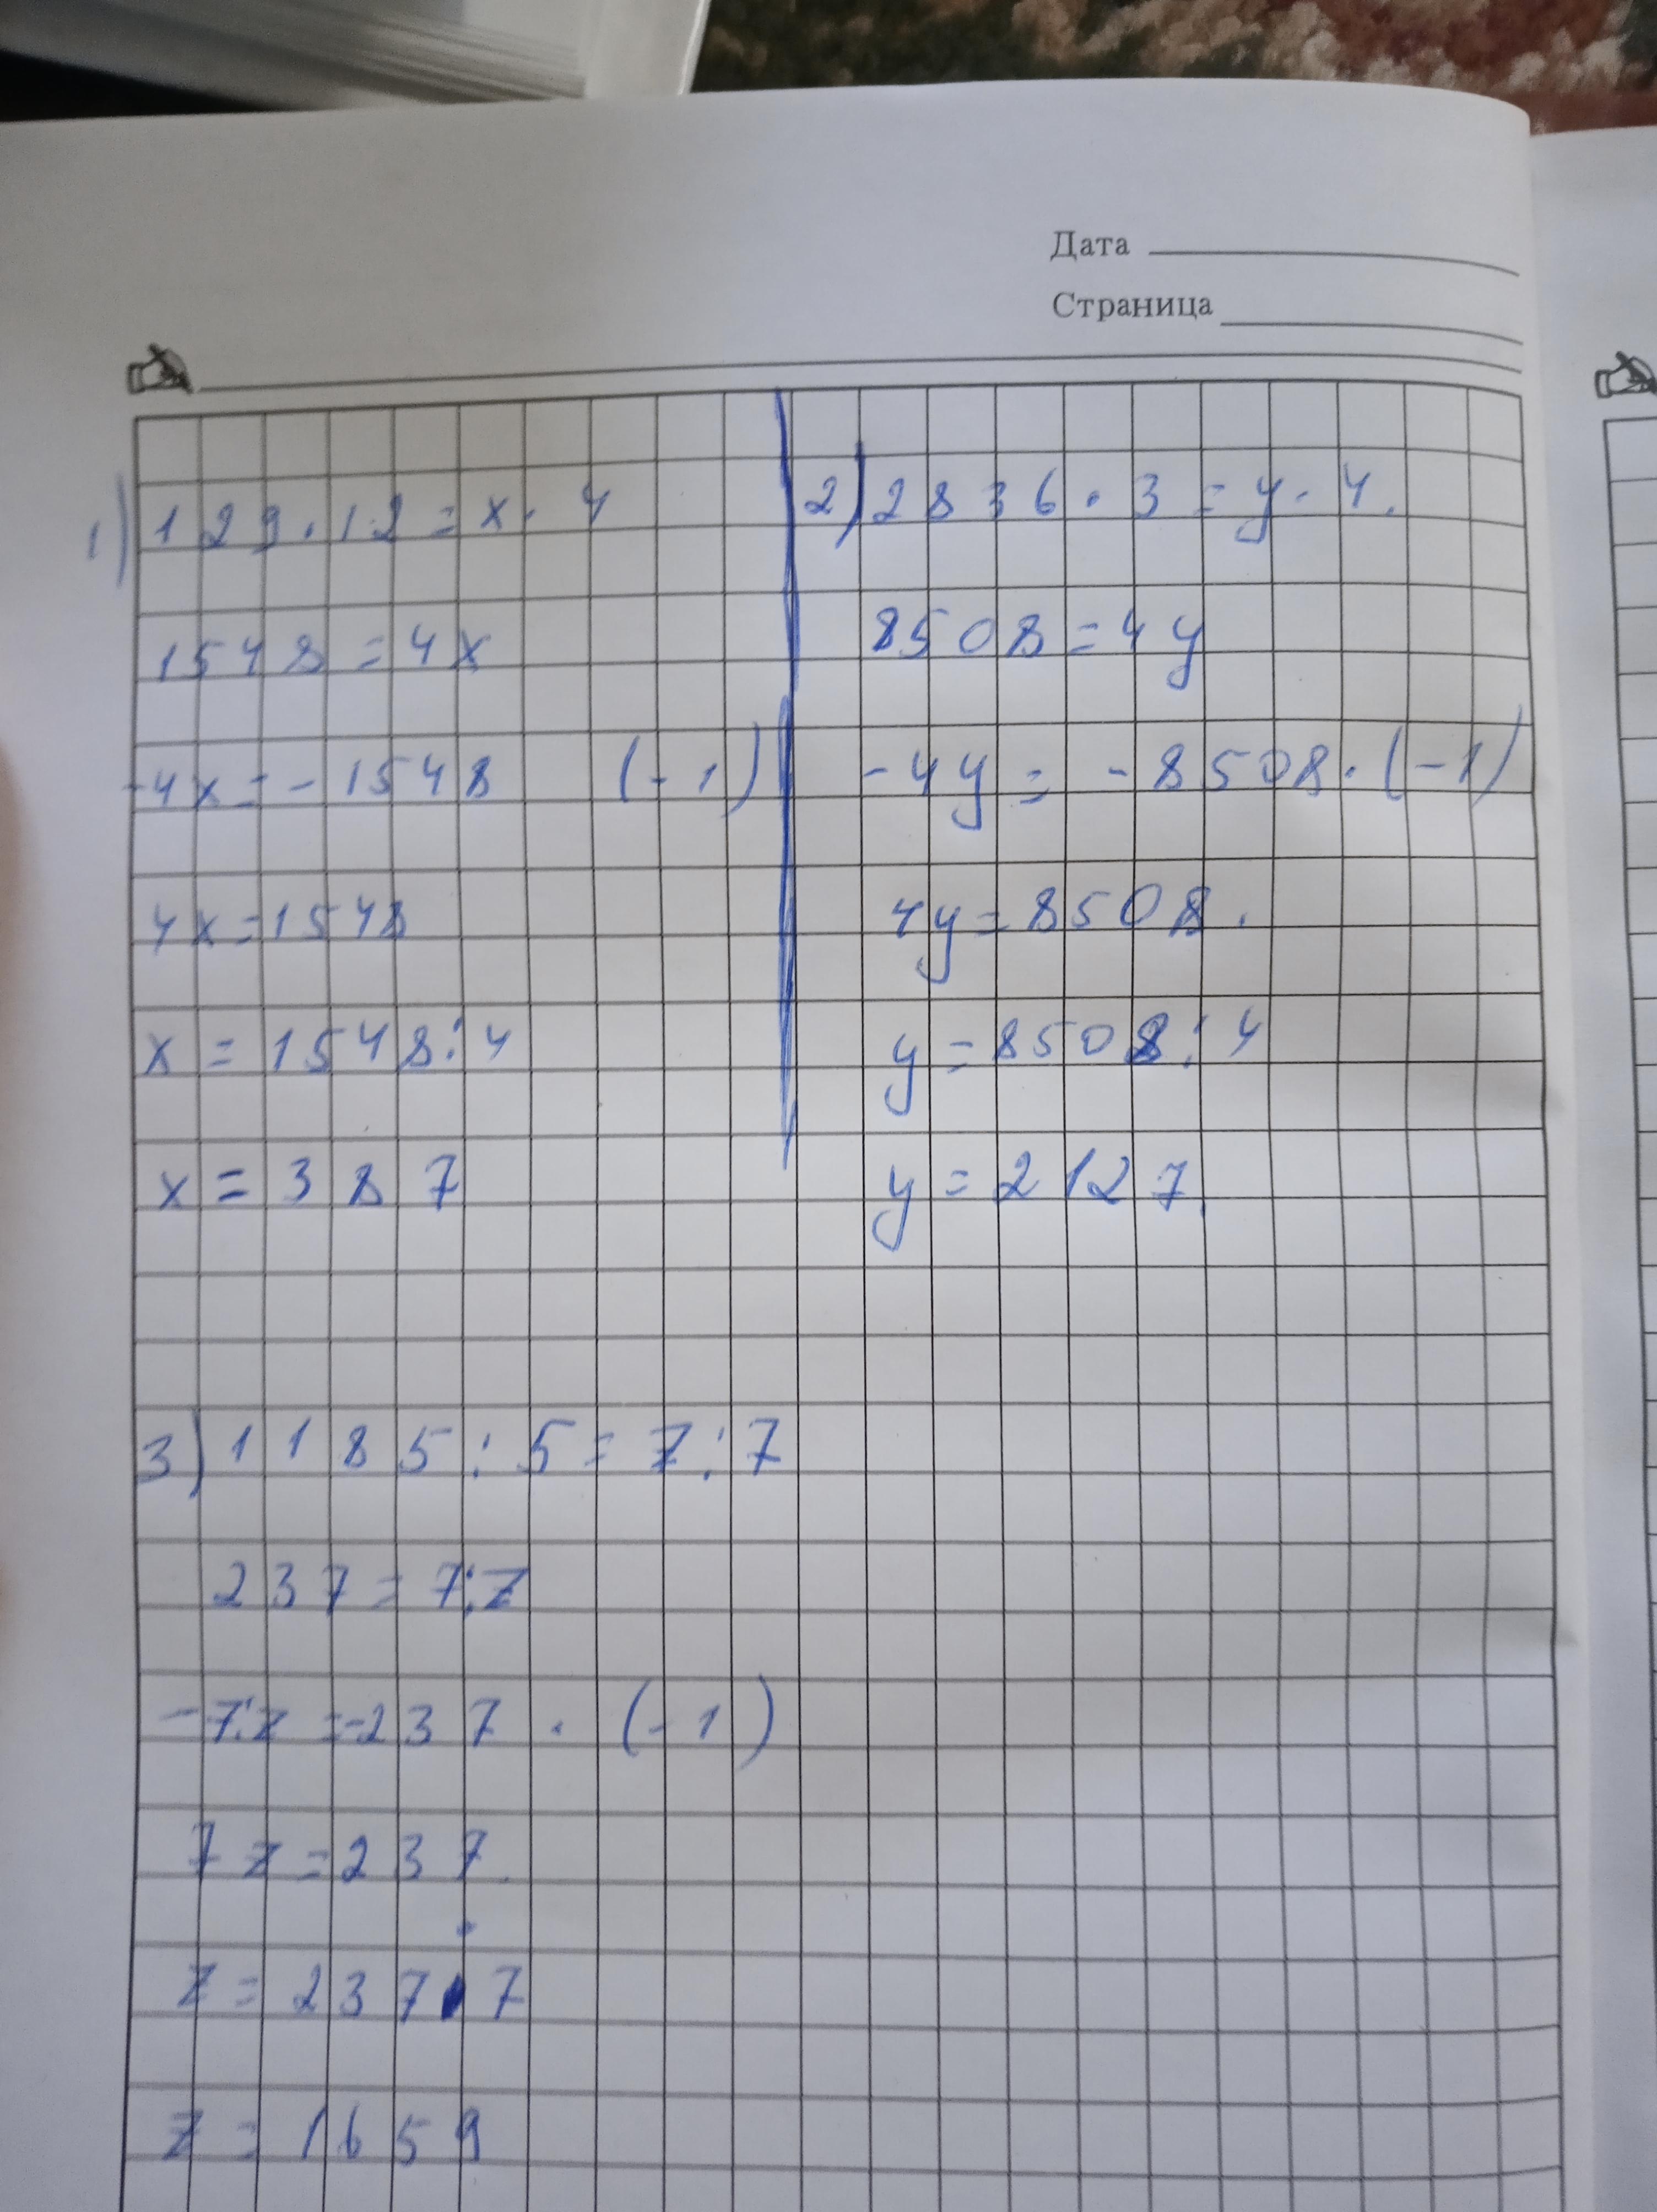 Дата
Страница
1) 129 · 12 = x · 4
1548 = 4x
-4x = -1548 (-1)
4x = 1548
x = 1548 : 4
x = 387
2) 2836 · 3 = y · 4.
8508 = 4y
-4y = -8508 · (-1)
4y = 8508.
y = 8508 : 4
y = 2127.
3) 1185 : 5 = z : 7
237 = 7 : z
-7 : z = -237 · (-1)
7z = 237.
z = 237 · 7
z = 1659